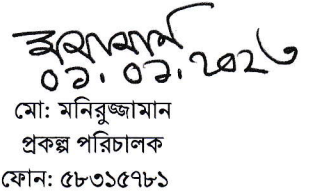 ০১.০১.২০২৩
মো: মনিরুজ্জামান
প্রকল্প পরিচালক
ফোন: ৫৮৩১৫৭৮১